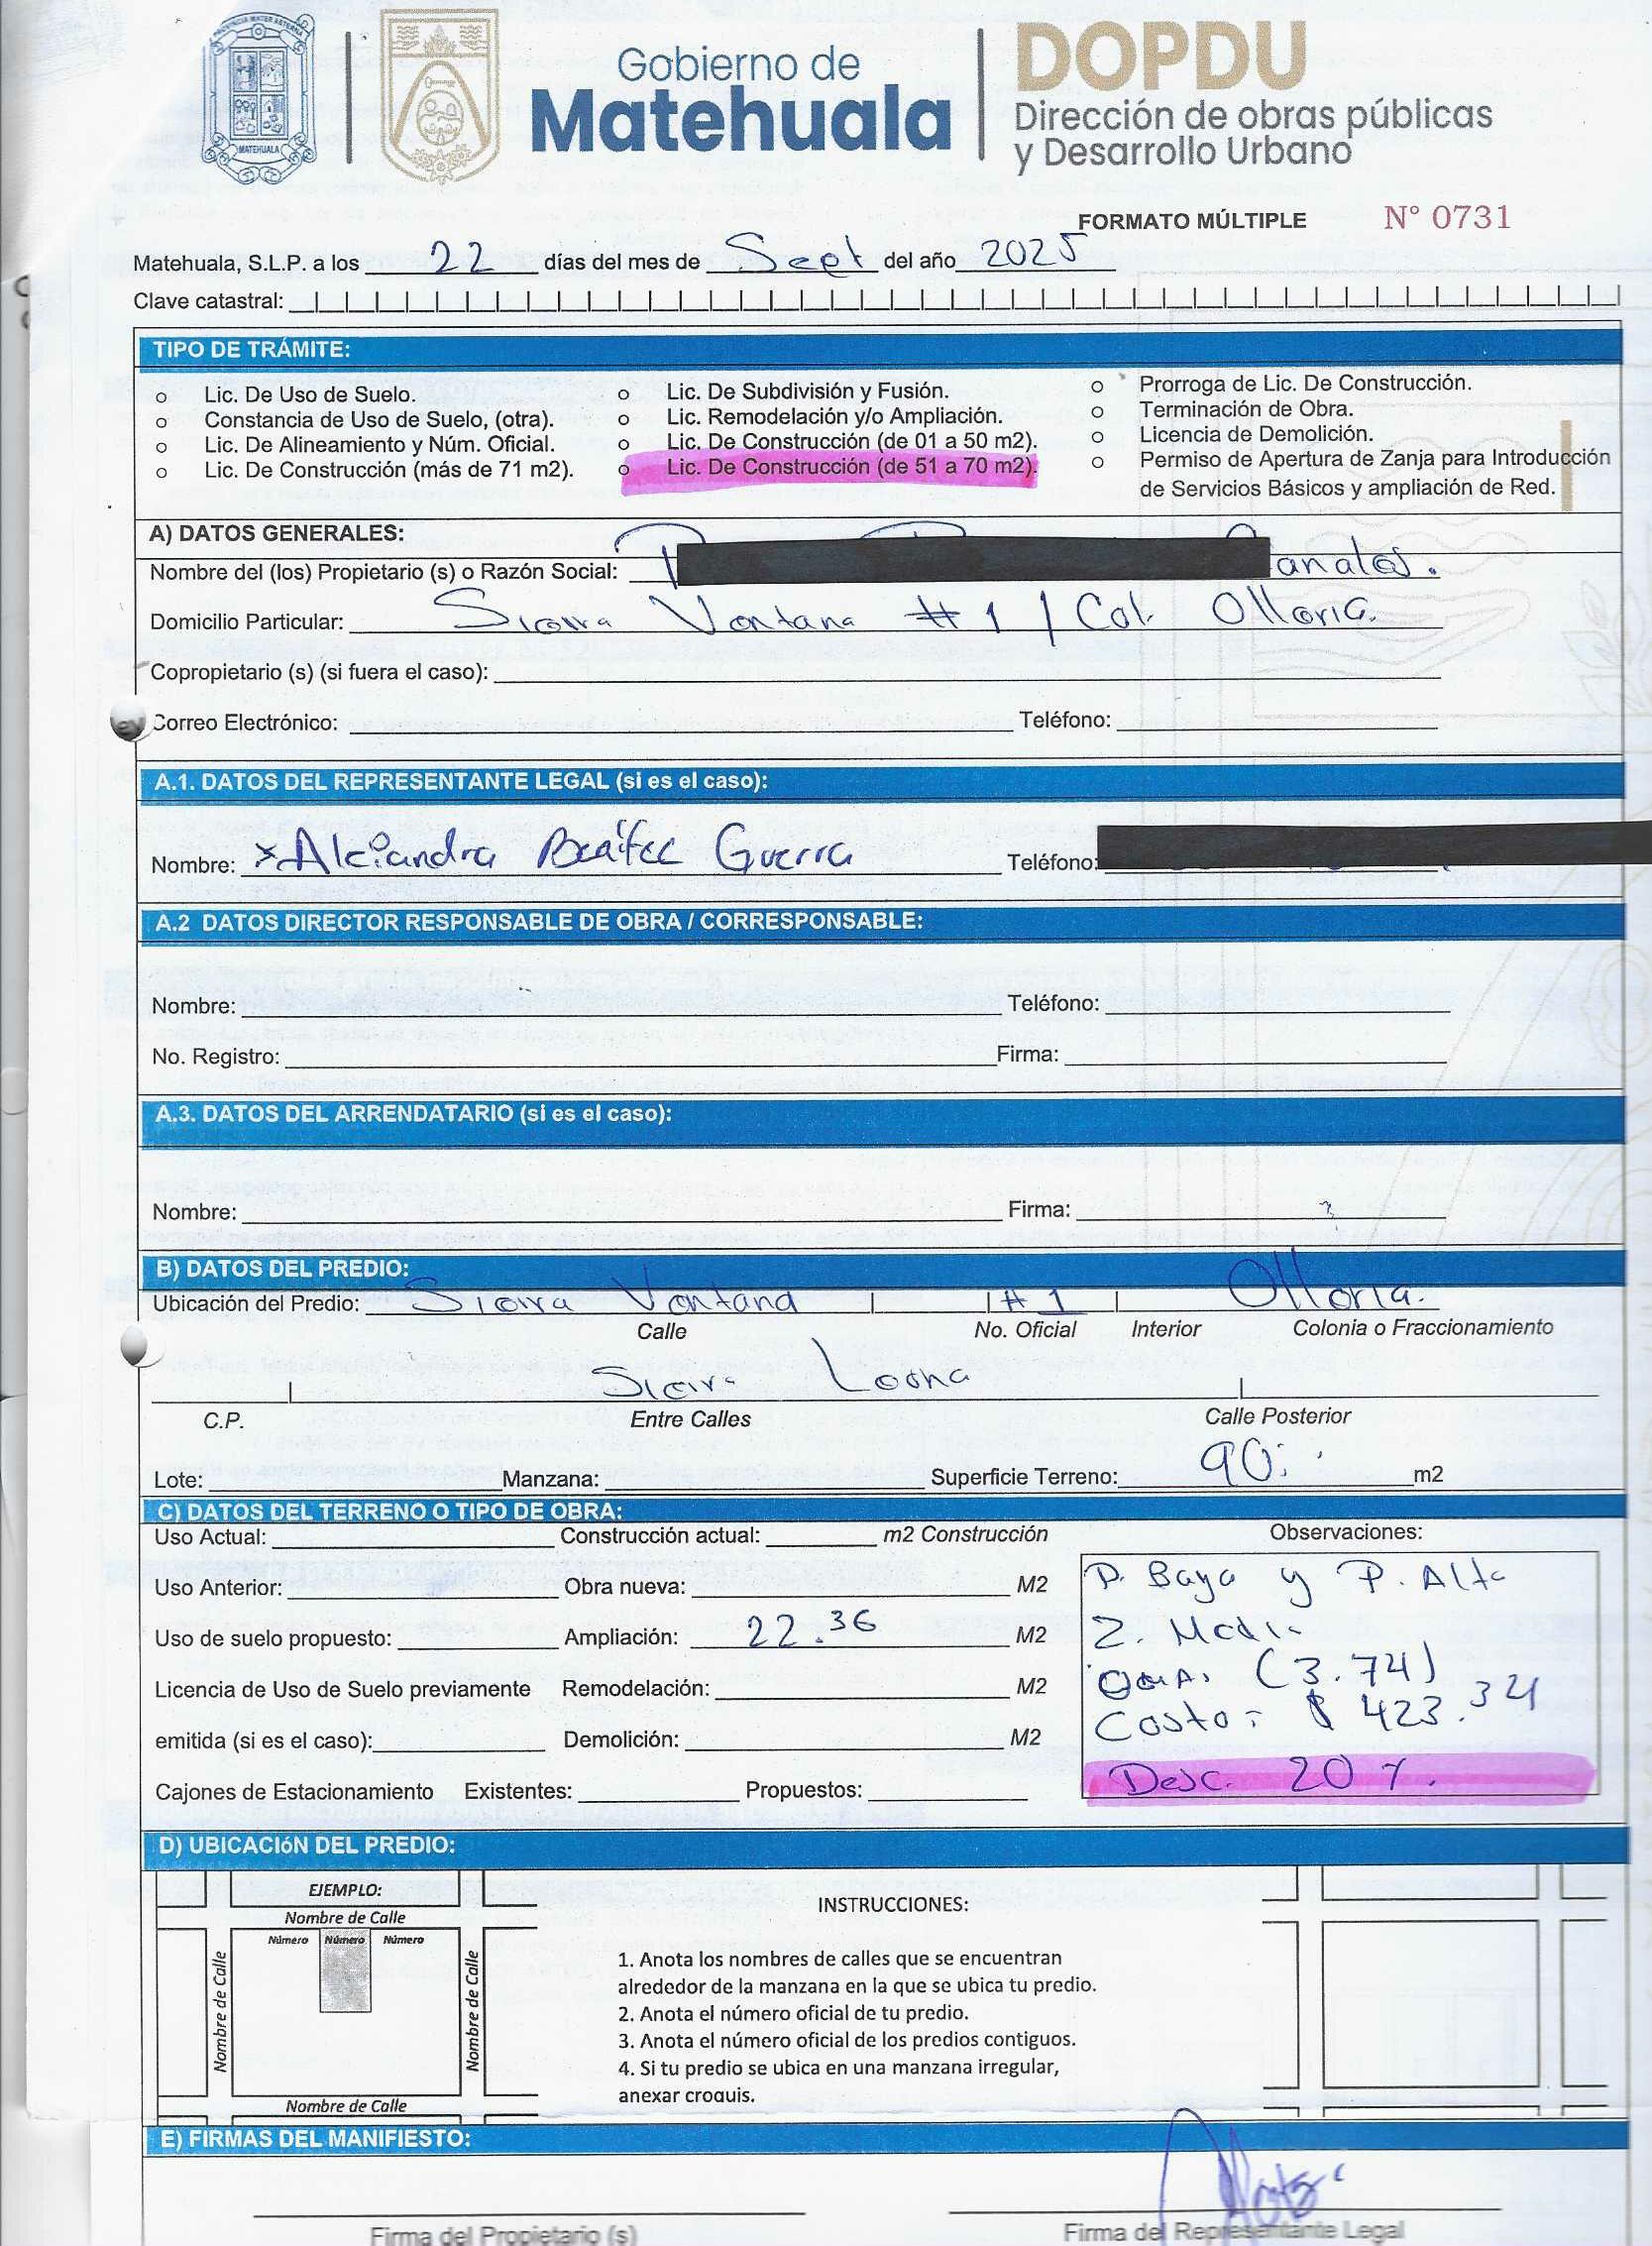 MATEHUALA
Gobierno de
Matehuala
DOPDU
Dirección de obras públicas
y Desarrollo Urbano
FORMATO MÚLTIPLE N° 0731
Matehuala, S.L.P. a los 22 días del mes de Sept del año 2025
Clave catastral:
TIPO DE TRÁMITE:
o Lic. De Uso de Suelo.
o Constancia de Uso de Suelo, (otra).
o Lic. De Alineamiento y Núm. Oficial.
o Lic. De Construcción (más de 71 m2).
o Lic. De Subdivisión y Fusión.
o Lic. Remodelación y/o Ampliación.
o Lic. De Construcción (de 01 a 50 m2).
o Lic. De Construcción (de 51 a 70 m2).
o Prorroga de Lic. De Construcción.
o Terminación de Obra.
o Licencia de Demolición.
o Permiso de Apertura de Zanja para Introducción
de Servicios Básicos y ampliación de Red.
A) DATOS GENERALES:
Nombre del (los) Propietario (s) o Razón Social:
Domicilio Particular: Sierra Ventana # 1 / Col. Olleria.
Copropietario (s) (si fuera el caso):
Correo Electrónico: Teléfono:
A.1. DATOS DEL REPRESENTANTE LEGAL (si es el caso):
Nombre: x Alejandra Beatriz Guerra Teléfono:
A.2 DATOS DIRECTOR RESPONSABLE DE OBRA / CORRESPONSABLE:
Nombre: Teléfono:
No. Registro: Firma:
A.3. DATOS DEL ARRENDATARIO (si es el caso):
Nombre: Firma:
B) DATOS DEL PREDIO:
Ubicación del Predio: Sierra Ventana # 1 Olleria.
Calle No. Oficial Interior Colonia o Fraccionamiento
Sierra
C.P. Entre Calles Calle Posterior
Lote: Manzana: Superficie Terreno: 90 m2
C) DATOS DEL TERRENO O TIPO DE OBRA:
Uso Actual: Construcción actual: m2 Construcción
Uso Anterior: Obra nueva: M2
Uso de suelo propuesto: Ampliación: 22.36 M2
Licencia de Uso de Suelo previamente Remodelación: M2
emitida (si es el caso): Demolición: M2
Cajones de Estacionamiento Existentes: Propuestos:
Observaciones:
P. Baja y P. Alta
Z. Media
(3.74)
Costo = $ 423.34
Desc. 20 %.
D) UBICACIóN DEL PREDIO:
EJEMPLO:
Nombre de Calle
Número Número Número
Nombre de Calle
Nombre de Calle
Nombre de Calle
INSTRUCCIONES:
1. Anota los nombres de calles que se encuentran
alrededor de la manzana en la que se ubica tu predio.
2. Anota el número oficial de tu predio.
3. Anota el número oficial de los predios contiguos.
4. Si tu predio se ubica en una manzana irregular,
anexar croquis.
E) FIRMAS DEL MANIFIESTO:
Firma del Propietario (s) Firma del Representante Legal